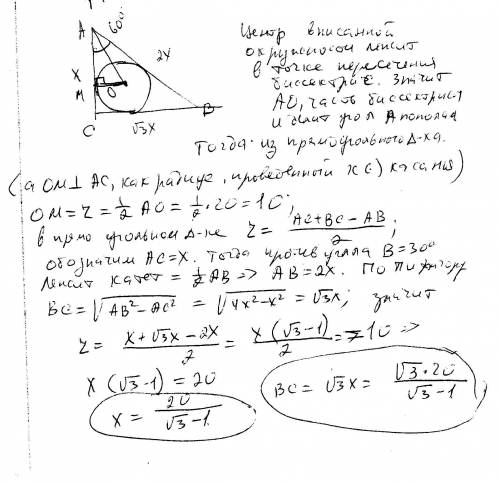 A
60°
2x
x
M
O
C
√3x
B
Центр вписанной
окружности лежит
в точке пересечения
биссектрис. Значит
AO, часть биссектрисы
и делит угол A пополам
Тогда из прямоугольного Δ-ка
(а OM⊥AC, как радиус, проведенный к (·) касания)
OM = r = 1/2 AO = 1/2 · 20 = 10;
в прямоугольном Δ-ке r = (AC+BC-AB)/2;
обозначим AC=x. Тогда против угла B=30°
лежит катет = 1/2 AB => AB=2x. По Пифагору
BC = √(AB²-AC²) = √(4x²-x²) = √3x; значит
r = (x+√3x-2x)/2 = x(√3-1)/2 = 10 =>
x(√3-1) = 20
x = 20/(√3-1)
BC = √3x = √3·20/(√3-1)